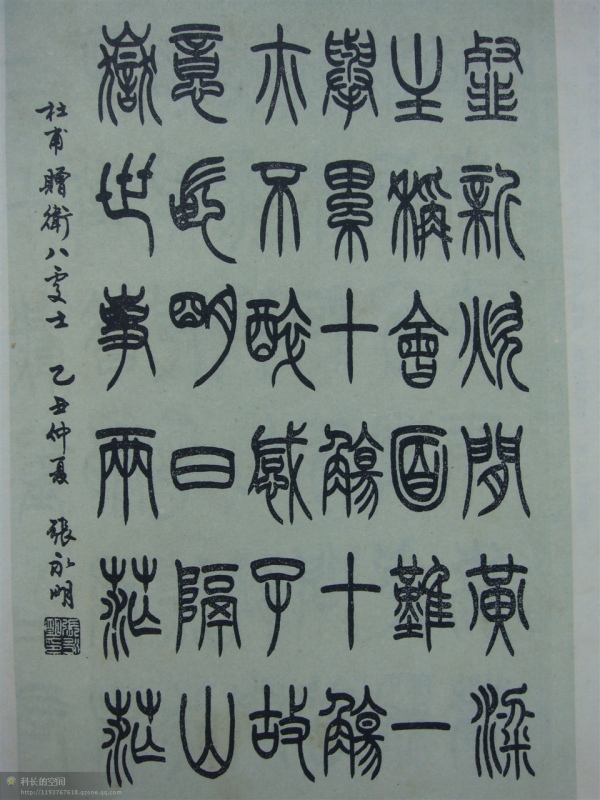 新炊閒黃粱
主稱會面難一
舉累十觴十觴
亦不醉感子故
意長明日隔山
嶽世事兩茫茫
杜甫贈衛八處士 乙丑仲夏 張永明
科长的空间
http://1193767618.qzone.qq.com